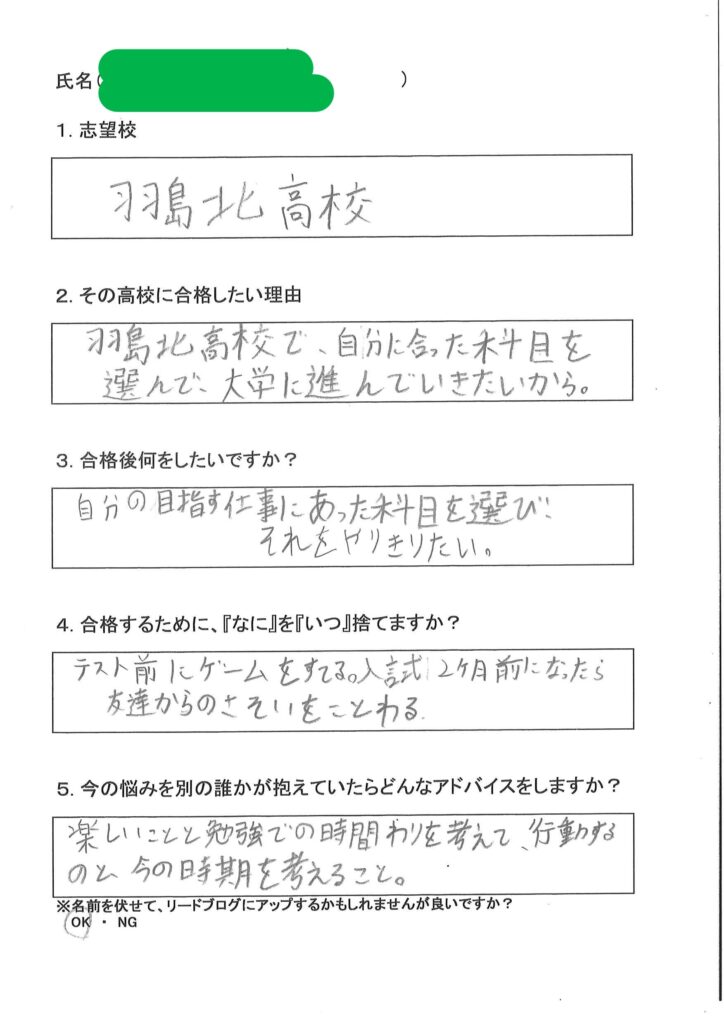 氏名( )
1. 志望校
羽島北高校
2. その高校に合格したい理由
羽島北高校で、自分に合った科目を
選んで、大学に進んでいきたいから。
3. 合格後何をしたいですか？
自分の目指す仕事にあった科目を選び、
それをやりきりたい。
4. 合格するために、『なに』を『いつ』捨てますか？
テスト前にゲームをすてる。入試2ヶ月前になったら
友達からのさそいをことわる.
5. 今の悩みを別の誰かが抱えていたらどんなアドバイスをしますか？
楽しいことと勉強での時間わりを考えて、行動する
のと、今の時期を考えること。
※名前を伏せて、リードブログにアップするかもしれませんが良いですか？
OK ・ NG